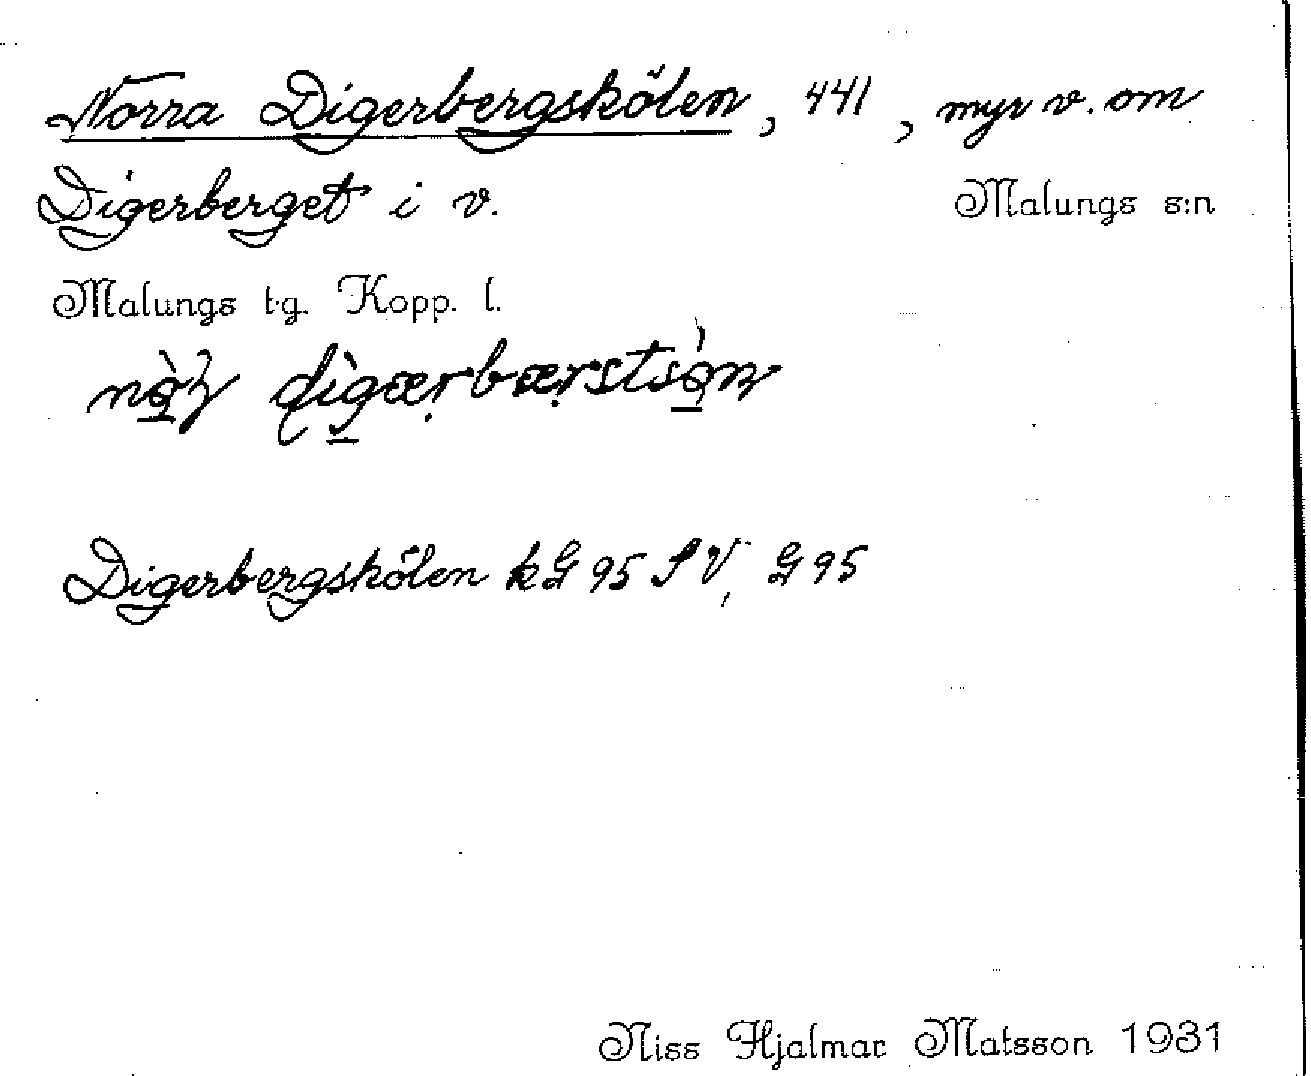 Norra Digerbergskölen, 441, myr v. om
Digerberget i v. Malungs s:n
Malungs t.g. Kopp. l.
digærbærstsǫ̀n
Digerbergskölen k G 95 S V, G 95
Niss Hjalmar Matsson 1931